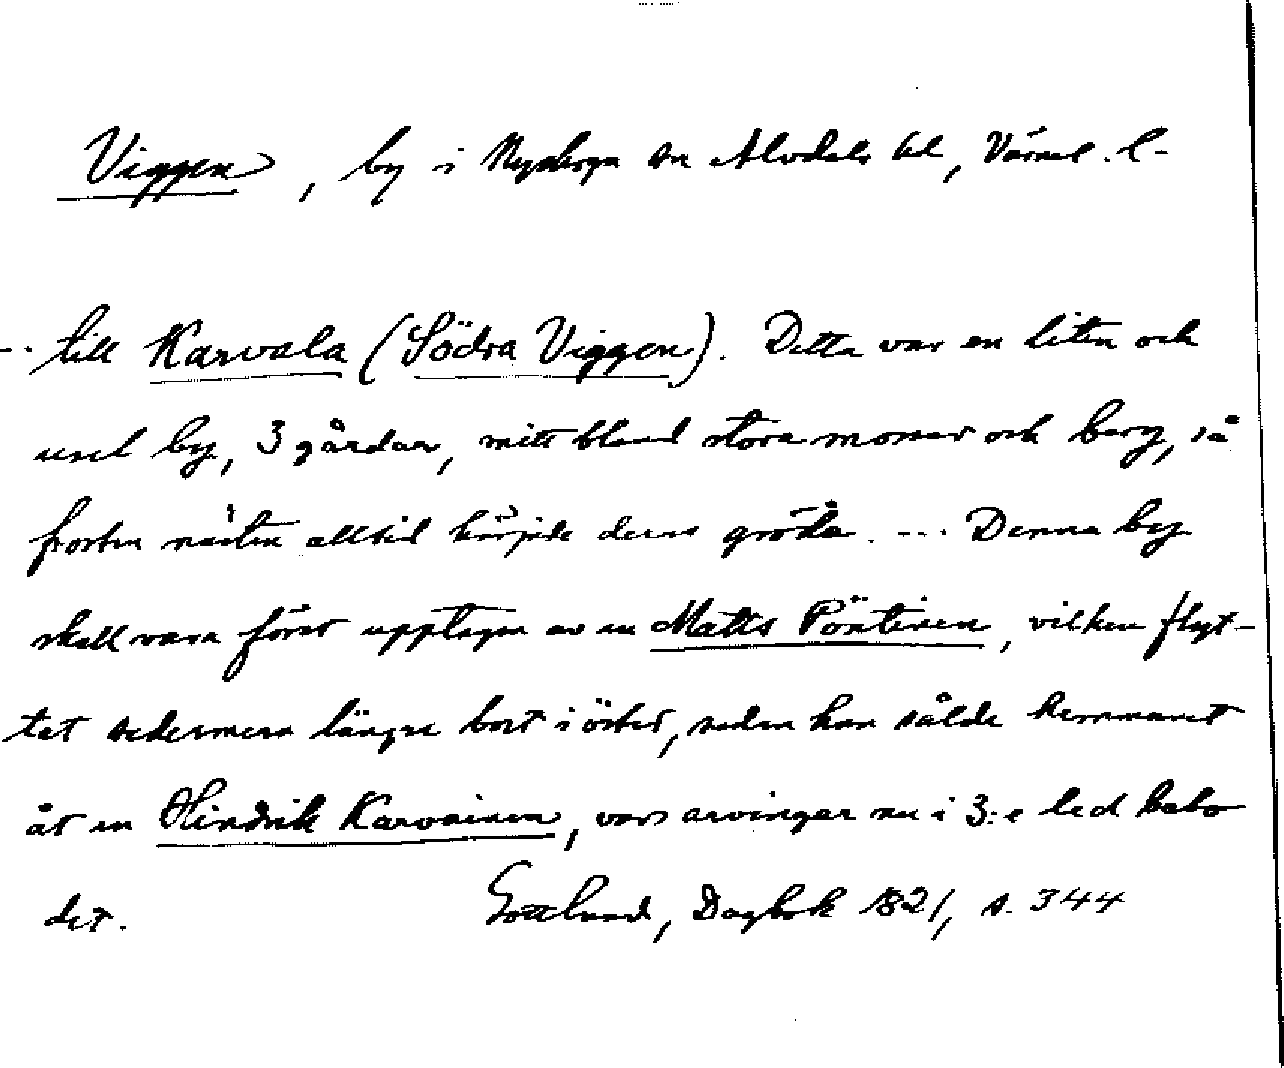 Viggen, by i Nyskoga sn Älvdals hd, Värml. l-
-. till Karvala (Södra Viggen). Detta var en liten och
usel by, 3 gårdar, mitt bland stora mossar och berg, så
frosten nästan alltid härjade deras gröda. --. Denna by
skall vara först upptagen av en Matts Pöntinen, vilken flyt-
tat sedermera längre bort i öster, sedan han sålde hemmanet
åt en Hindrik Karvainen, vars arvingar nu i 3:e led bebo
det. Gottlund, Dagbok 1821, s. 344